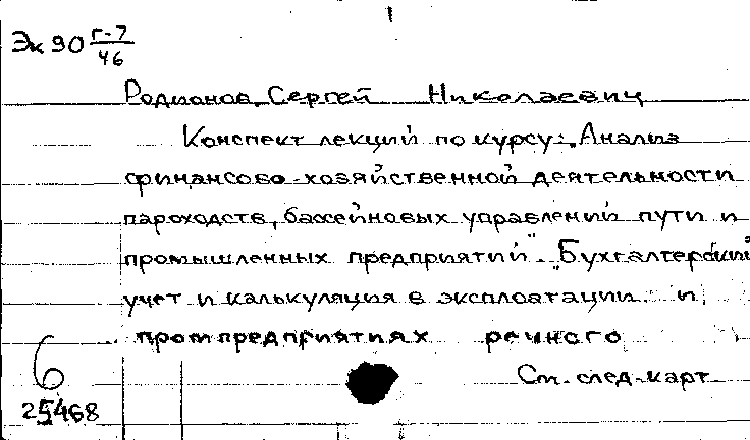 Эк 90 Г-7/46
Родионов, Сергей Николаевич
Конспект лекций по курсу: "Анализ
финансово-хозяйственной деятельности
пароходств, бассейновых управлений пути и
промышленных предприятий". "Бухгалтерский
учет и калькуляция в эксплоатации и
промпредприятиях речного
См. след. карт
6
25468